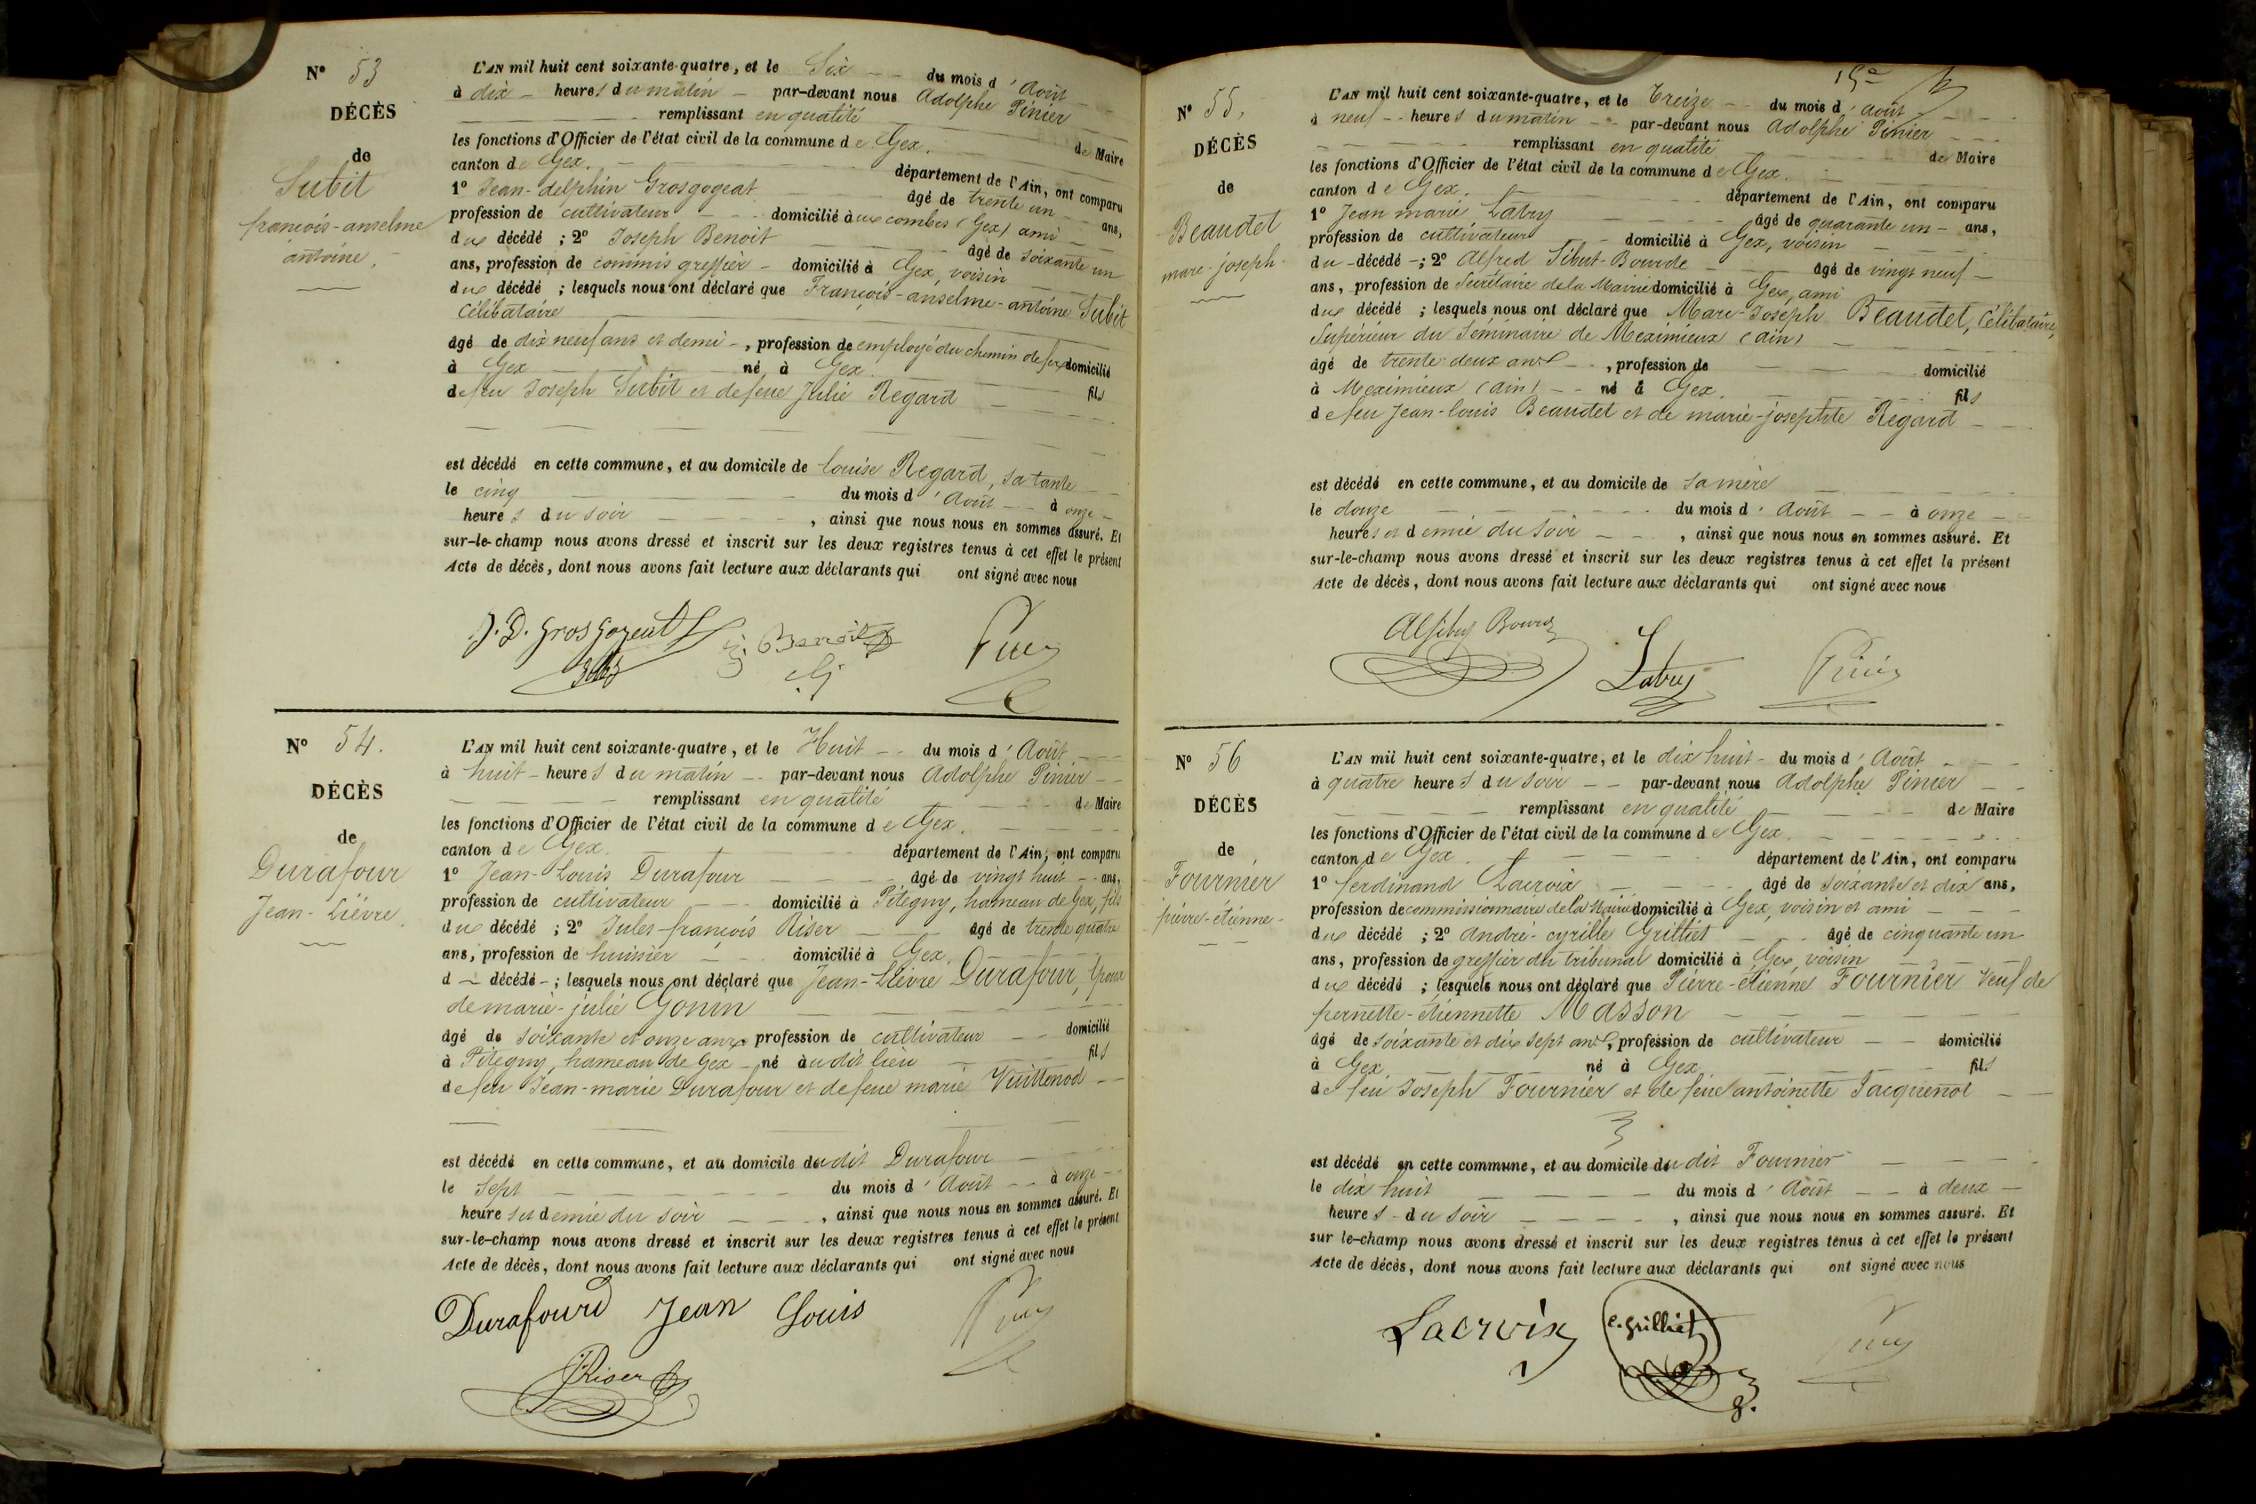 N° 53
DÉCÈS
de
Subit
françois-anselme
antoine
L'AN mil huit cent soixante-quatre, et le Six du mois d'Août
à dix heures du matin par-devant nous Adolphe Pinier
remplissant en qualité de Maire
les fonctions d'Officier de l'état civil de la commune de Gex.
canton de Gex. département de l'Ain, ont comparu
1° Jean-delphin Grosgogeat âgé de trente un ans,
profession de cultivateur domicilié à aux combes (Gex) ami
du décédé ; 2° Joseph Benoit âgé de soixante un
ans, profession de commis greffier domicilié à Gex, voisin
du décédé ; lesquels nous ont déclaré que François-anselme-antoine Subit
célibataire
âgé de dix neuf ans et demi, profession de employé du chemin de fer domicilié
à Gex né à Gex. fils
de feu Joseph Subit et de feue Julie Regard
est décédé en cette commune, et au domicile de louise Regard, sa tante
le cinq du mois d'Août à onze
heures du soir, ainsi que nous nous en sommes assuré. Et
sur-le-champ nous avons dressé et inscrit sur les deux registres tenus à cet effet le présent
Acte de décès, dont nous avons fait lecture aux déclarants qui ont signé avec nous
J. D. Grosgogeat J. Benoit
N° 54.
DÉCÈS
de
Durafour
Jean-Lièvre
L'AN mil huit cent soixante-quatre, et le Huit du mois d'Août
à huit heures du matin par-devant nous Adolphe Pinier
remplissant en qualité de Maire
les fonctions d'Officier de l'état civil de la commune de Gex.
canton de Gex. département de l'Ain, ont comparu
1° Jean-Louis Durafour âgé de vingt huit ans,
profession de cultivateur domicilié à Pitegny, hameau de Gex, fils
du décédé ; 2° Jules-françois Riser âgé de trente quatre
ans, profession de huissier domicilié à Gex.
d décédé ; lesquels nous ont déclaré que Jean-Lièvre Durafour, époux
de marie-julie Gonin
âgé de soixante et onze ans profession de cultivateur domicilié
à Pitegny, hameau de Gex né audit lieu fils
de feu Jean-marie Durafour et de feue marie Vuillenod
est décédé en cette commune, et au domicile dudit Durafour
le Sept du mois d'Août à onze
heures et demie du soir, ainsi que nous nous en sommes assuré. Et
sur-le-champ nous avons dressé et inscrit sur les deux registres tenus à cet effet le présent
Acte de décès, dont nous avons fait lecture aux déclarants qui ont signé avec nous
Durafourd Jean Louis
JRiser
N° 55,
DÉCÈS
de
Beaudet
marc-joseph
L'AN mil huit cent soixante-quatre, et le Treize du mois d'Août
à neuf heures du matin par-devant nous Adolphe Pinier
remplissant en qualité de Maire
les fonctions d'Officier de l'état civil de la commune de Gex.
canton de Gex. département de l'Ain, ont comparu
1° Jean marie Labry âgé de quarante un ans,
profession de cultivateur domicilié à Gex, voisin
du décédé ; 2° Alfred Sibut-Bourde âgé de vingt neuf
ans, profession de Secrétaire de la Mairie domicilié à Gex, ami
du décédé ; lesquels nous ont déclaré que Marc-Joseph Beaudet, célibataire,
Supérieur du Séminaire de Meximieux (ain)
âgé de trente deux ans, profession de domicilié
à Meximieux (ain) né à Gex. fils
de feu Jean-louis Beaudet et de marie-josephte Regard
est décédé en cette commune, et au domicile de sa mère
le douze du mois d'Août à onze
heures et demie du soir, ainsi que nous nous en sommes assuré. Et
sur-le-champ nous avons dressé et inscrit sur les deux registres tenus à cet effet le présent
Acte de décès, dont nous avons fait lecture aux déclarants qui ont signé avec nous
Labry Pinier
N° 56
DÉCÈS
de
Fournier
pierre-étienne
L'AN mil huit cent soixante-quatre, et le dix huit du mois d'Août
à quatre heures du soir par-devant nous Adolphe Pinier
remplissant en qualité de Maire
les fonctions d'Officier de l'état civil de la commune de Gex.
canton de Gex. département de l'Ain, ont comparu
1° ferdinand Lacroix âgé de soixante et dix ans,
profession de commissionnaire de la Mairie domicilié à Gex, voisin et ami
du décédé ; 2° André-cyrille Grilliet âgé de cinquante un
ans, profession de greffier du tribunal domicilié à Gex, voisin
du décédé ; lesquels nous ont déclaré que Pierre-étienne Fournier veuf de
pernette-étiennette Masson
âgé de soixante et dix sept ans, profession de cultivateur domicilié
à Gex né à Gex fils
de feu Joseph Fournier et de feue antoinette Jacquenot
est décédé en cette commune, et au domicile dudit Fournier
le dix huit du mois d'Août à deux
heures du soir, ainsi que nous nous en sommes assuré. Et
sur le-champ nous avons dressé et inscrit sur les deux registres tenus à cet effet le présent
Acte de décès, dont nous avons fait lecture aux déclarants qui ont signé avec nous
Lacroix C. Grilliet